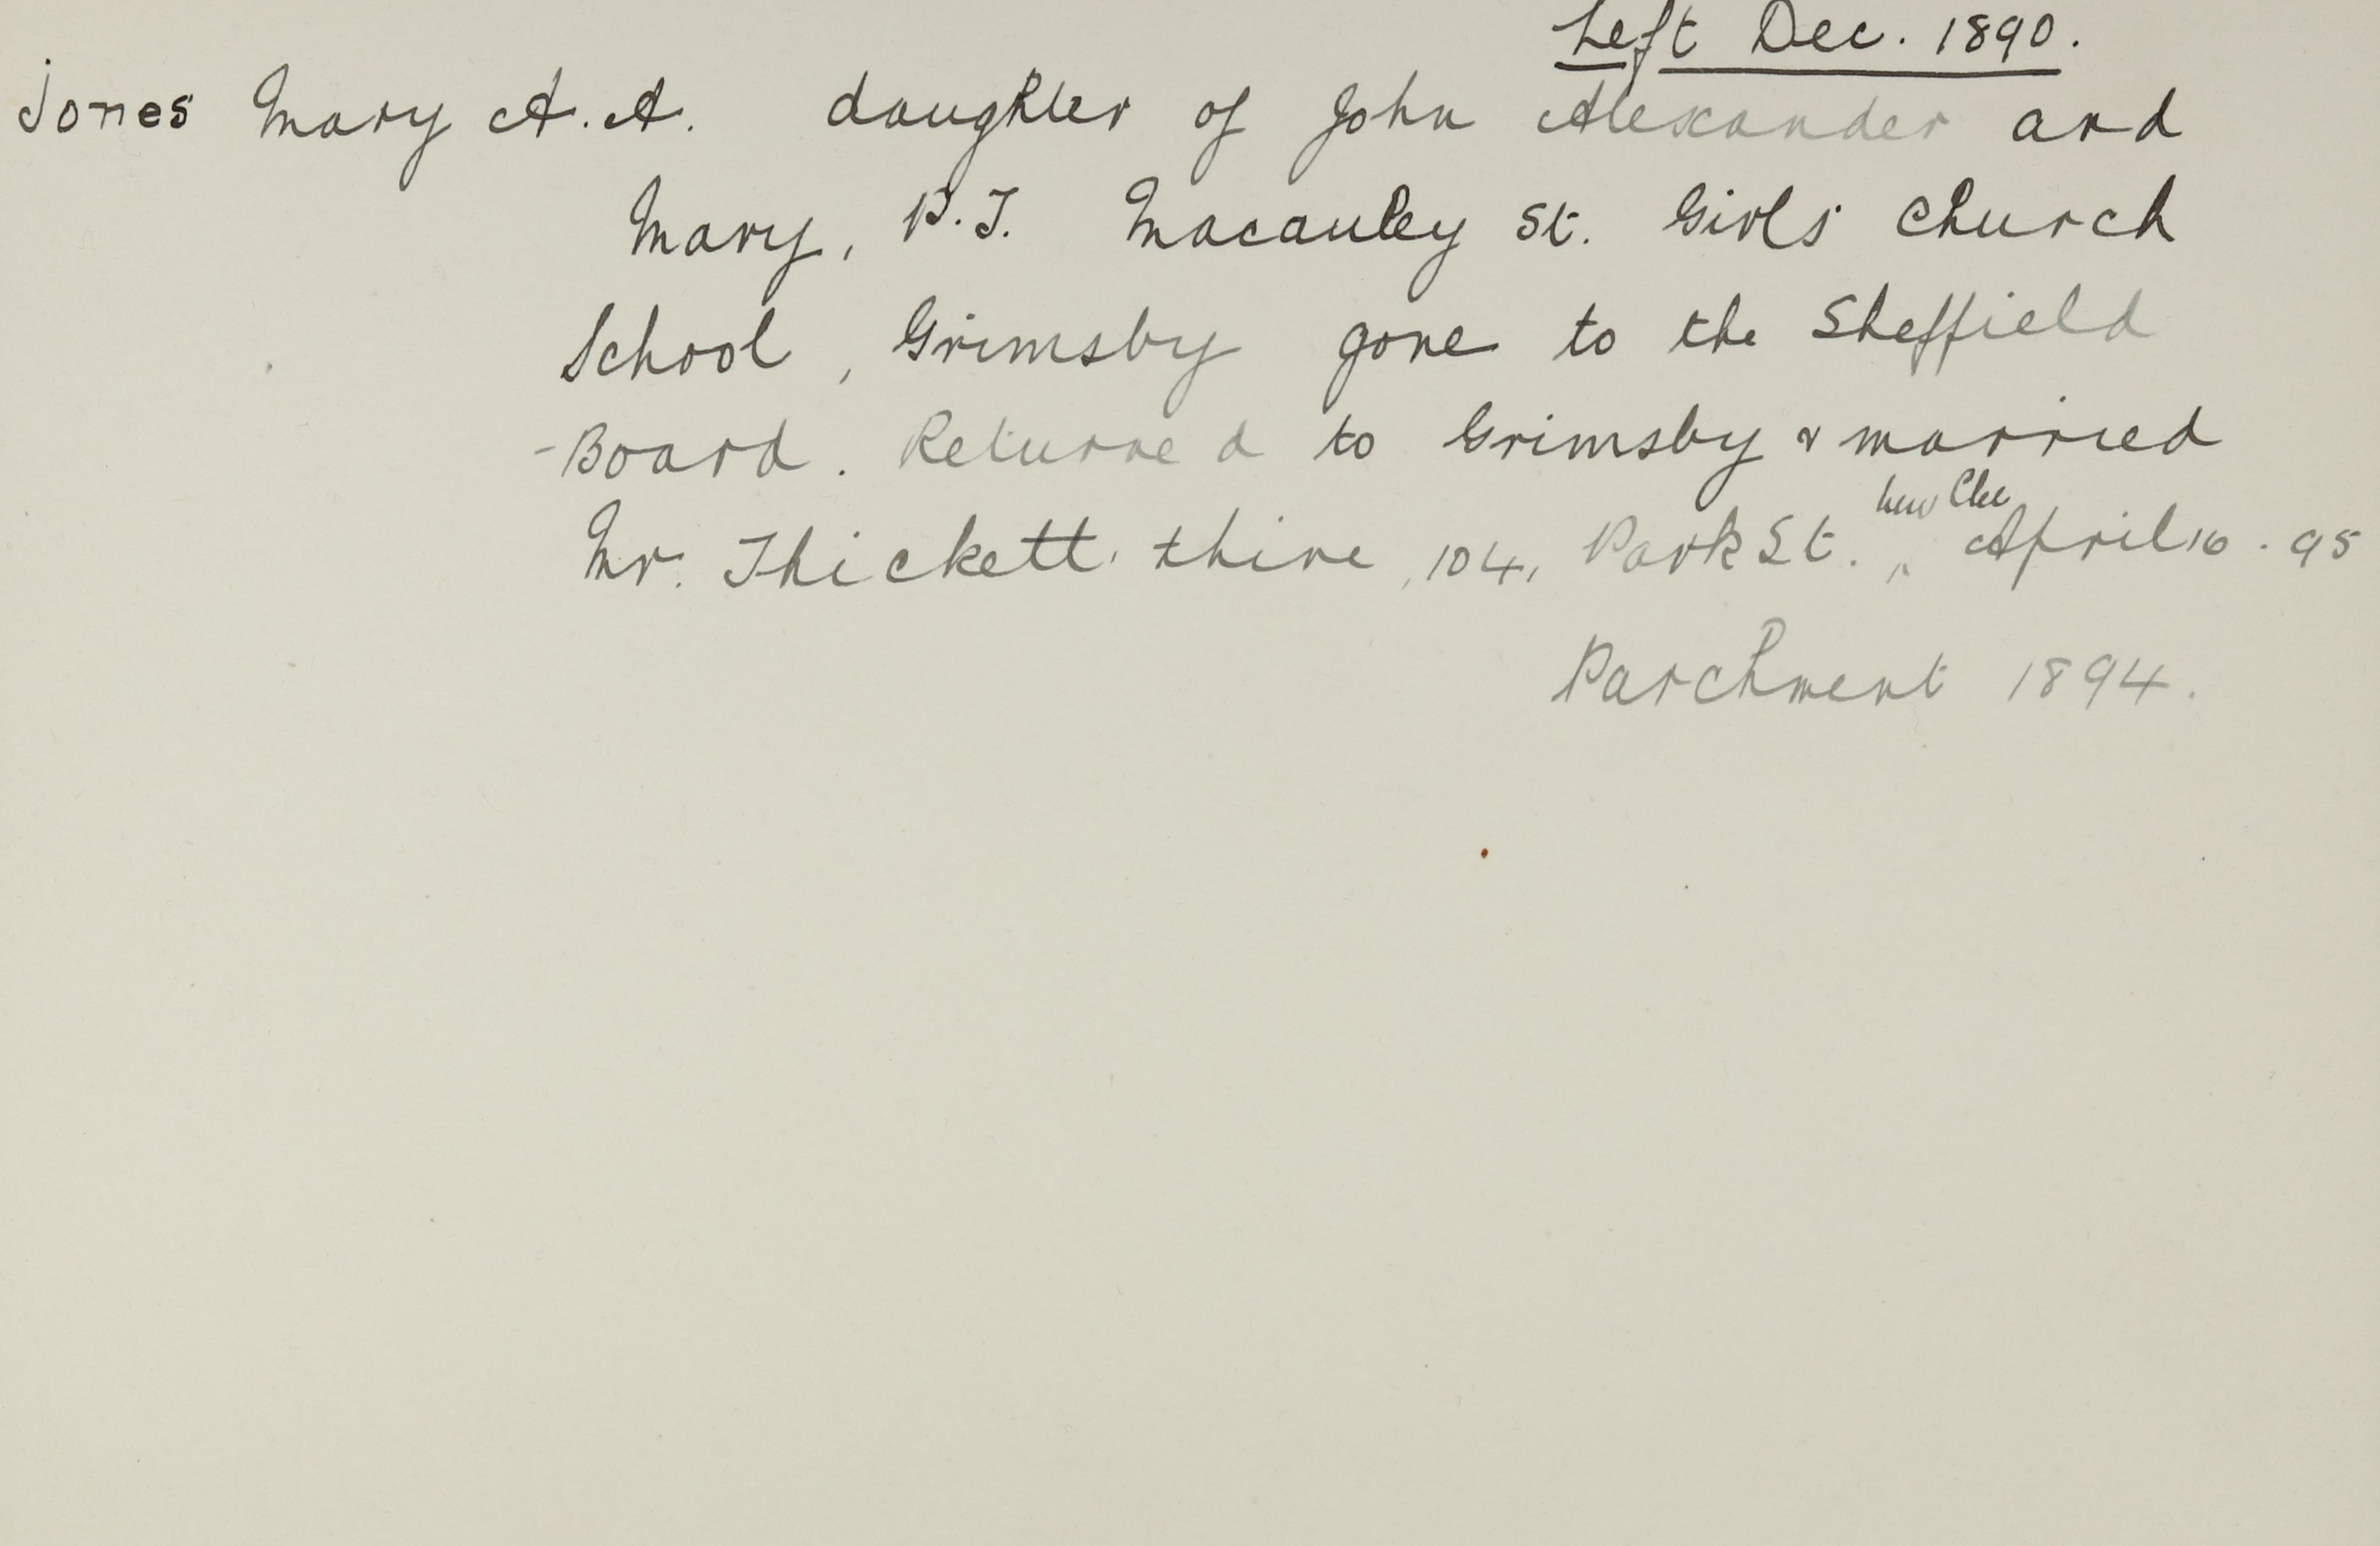 Left Dec. 1890.
Jones Mary A. A. daughter of John Alexander and
Mary, P.T. Macauley St. Girls' Church
School, Grimsby gone to the Sheffield
Board. Returned to Grimsby & married
New Clee
Mr. Thickett. thire, 104, Park St. April 16. 95
Parchment 1894.